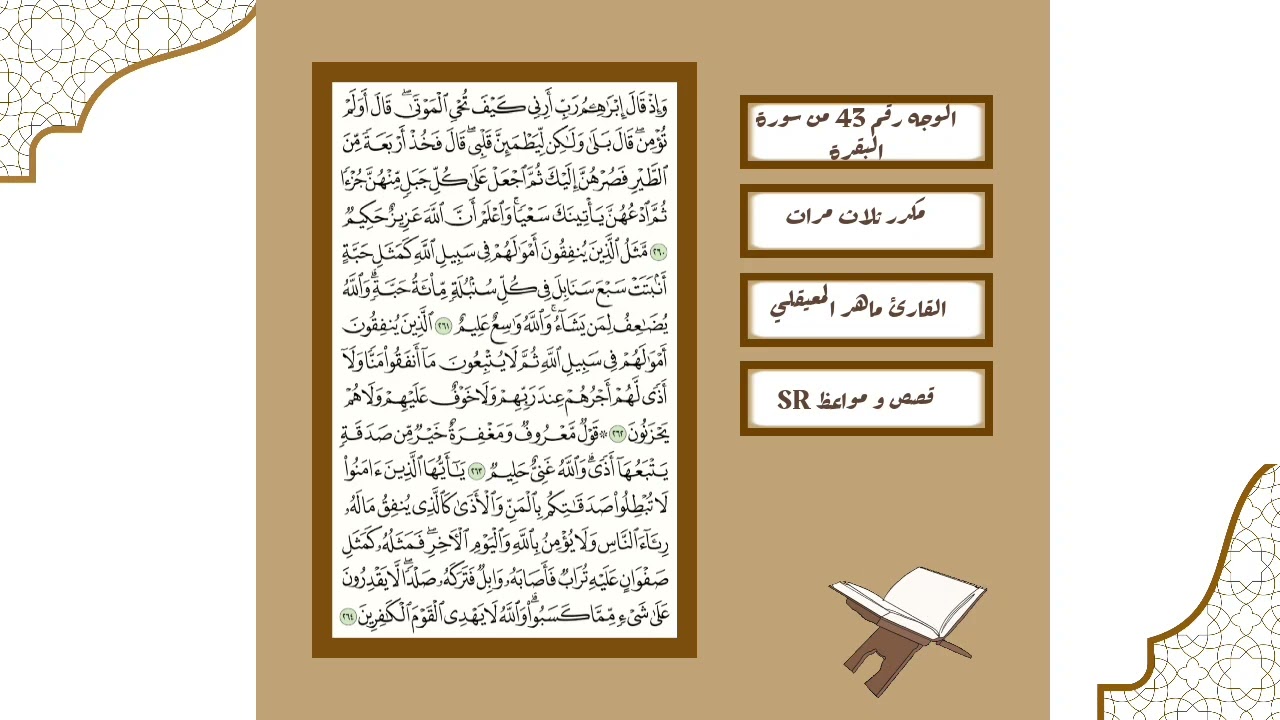 وَإِذْ قَالَ إِبْرَٰهِـۧمُ رَبِّ أَرِنِى كَيْفَ تُحْىِ ٱلْمَوْتَىٰ ۖ قَالَ أَوَلَمْ
تُؤْمِن ۖ قَالَ بَلَىٰ وَلَٰكِن لِّيَطْمَئِنَّ قَلْبِى ۖ قَالَ فَخُذْ أَرْبَعَةً مِّنَ
ٱلطَّيْرِ فَصُرْهُنَّ إِلَيْكَ ثُمَّ ٱجْعَلْ عَلَىٰ كُلِّ جَبَلٍ مِّنْهُنَّ جُزْءًا
ثُمَّ ٱدْعُهُنَّ يَأْتِينَكَ سَعْيًا ۚ وَٱعْلَمْ أَنَّ ٱللَّهَ عَزِيزٌ حَكِيمٌ
٢٦٠ مَّثَلُ ٱلَّذِينَ يُنفِقُونَ أَمْوَٰلَهُمْ فِى سَبِيلِ ٱللَّهِ كَمَثَلِ حَبَّةٍ
أَنۢبَتَتْ سَبْعَ سَنَابِلَ فِى كُلِّ سُنۢبُلَةٍ مِّا۟ئَةُ حَبَّةٍ ۗ وَٱللَّهُ
يُضَٰعِفُ لِمَن يَشَآءُ ۚ وَٱللَّهُ وَٰسِعٌ عَلِيمٌ ٢٦١ ٱلَّذِينَ يُنفِقُونَ
أَمْوَٰلَهُمْ فِى سَبِيلِ ٱللَّهِ ثُمَّ لَا يُتْبِعُونَ مَآ أَنفَقُوا۟ مَنًّا وَلَآ
أَذًى لَّهُمْ أَجْرُهُمْ عِندَ رَبِّهِمْ وَلَا خَوْفٌ عَلَيْهِمْ وَلَا هُمْ
يَحْزَنُونَ ٢٦٢ ۞ قَوْلٌ مَّعْرُوفٌ وَمَغْفِرَةٌ خَيْرٌ مِّن صَدَقَةٍ
يَتْبَعُهَآ أَذًى ۗ وَٱللَّهُ غَنِىٌّ حَلِيمٌ ٢٦٣ يَٰٓأَيُّهَا ٱلَّذِينَ ءَامَنُوا۟
لَا تُبْطِلُوا۟ صَدَقَٰتِكُم بِٱلْمَنِّ وَٱلْأَذَىٰ كَٱلَّذِى يُنفِقُ مَالَهُۥ
رِئَآءَ ٱلنَّاسِ وَلَا يُؤْمِنُ بِٱللَّهِ وَٱلْيَوْمِ ٱلْءَاخِرِ ۖ فَمَثَلُهُۥ كَمَثَلِ
صَفْوَانٍ عَلَيْهِ تُرَابٌ فَأَصَابَهُۥ وَابِلٌ فَتَرَكَهُۥ صَلْدًا ۖ لَّا يَقْدِرُونَ
عَلَىٰ شَىْءٍ مِّمَّا كَسَبُوا۟ ۗ وَٱللَّهُ لَا يَهْدِى ٱلْقَوْمَ ٱلْكَٰفِرِينَ ٢٦٤
الوجه رقم 43 من سورة
البقرة
مكرر ثلاث مرات
القارئ ماهر المعيقلي
قصص و مواعظ SR